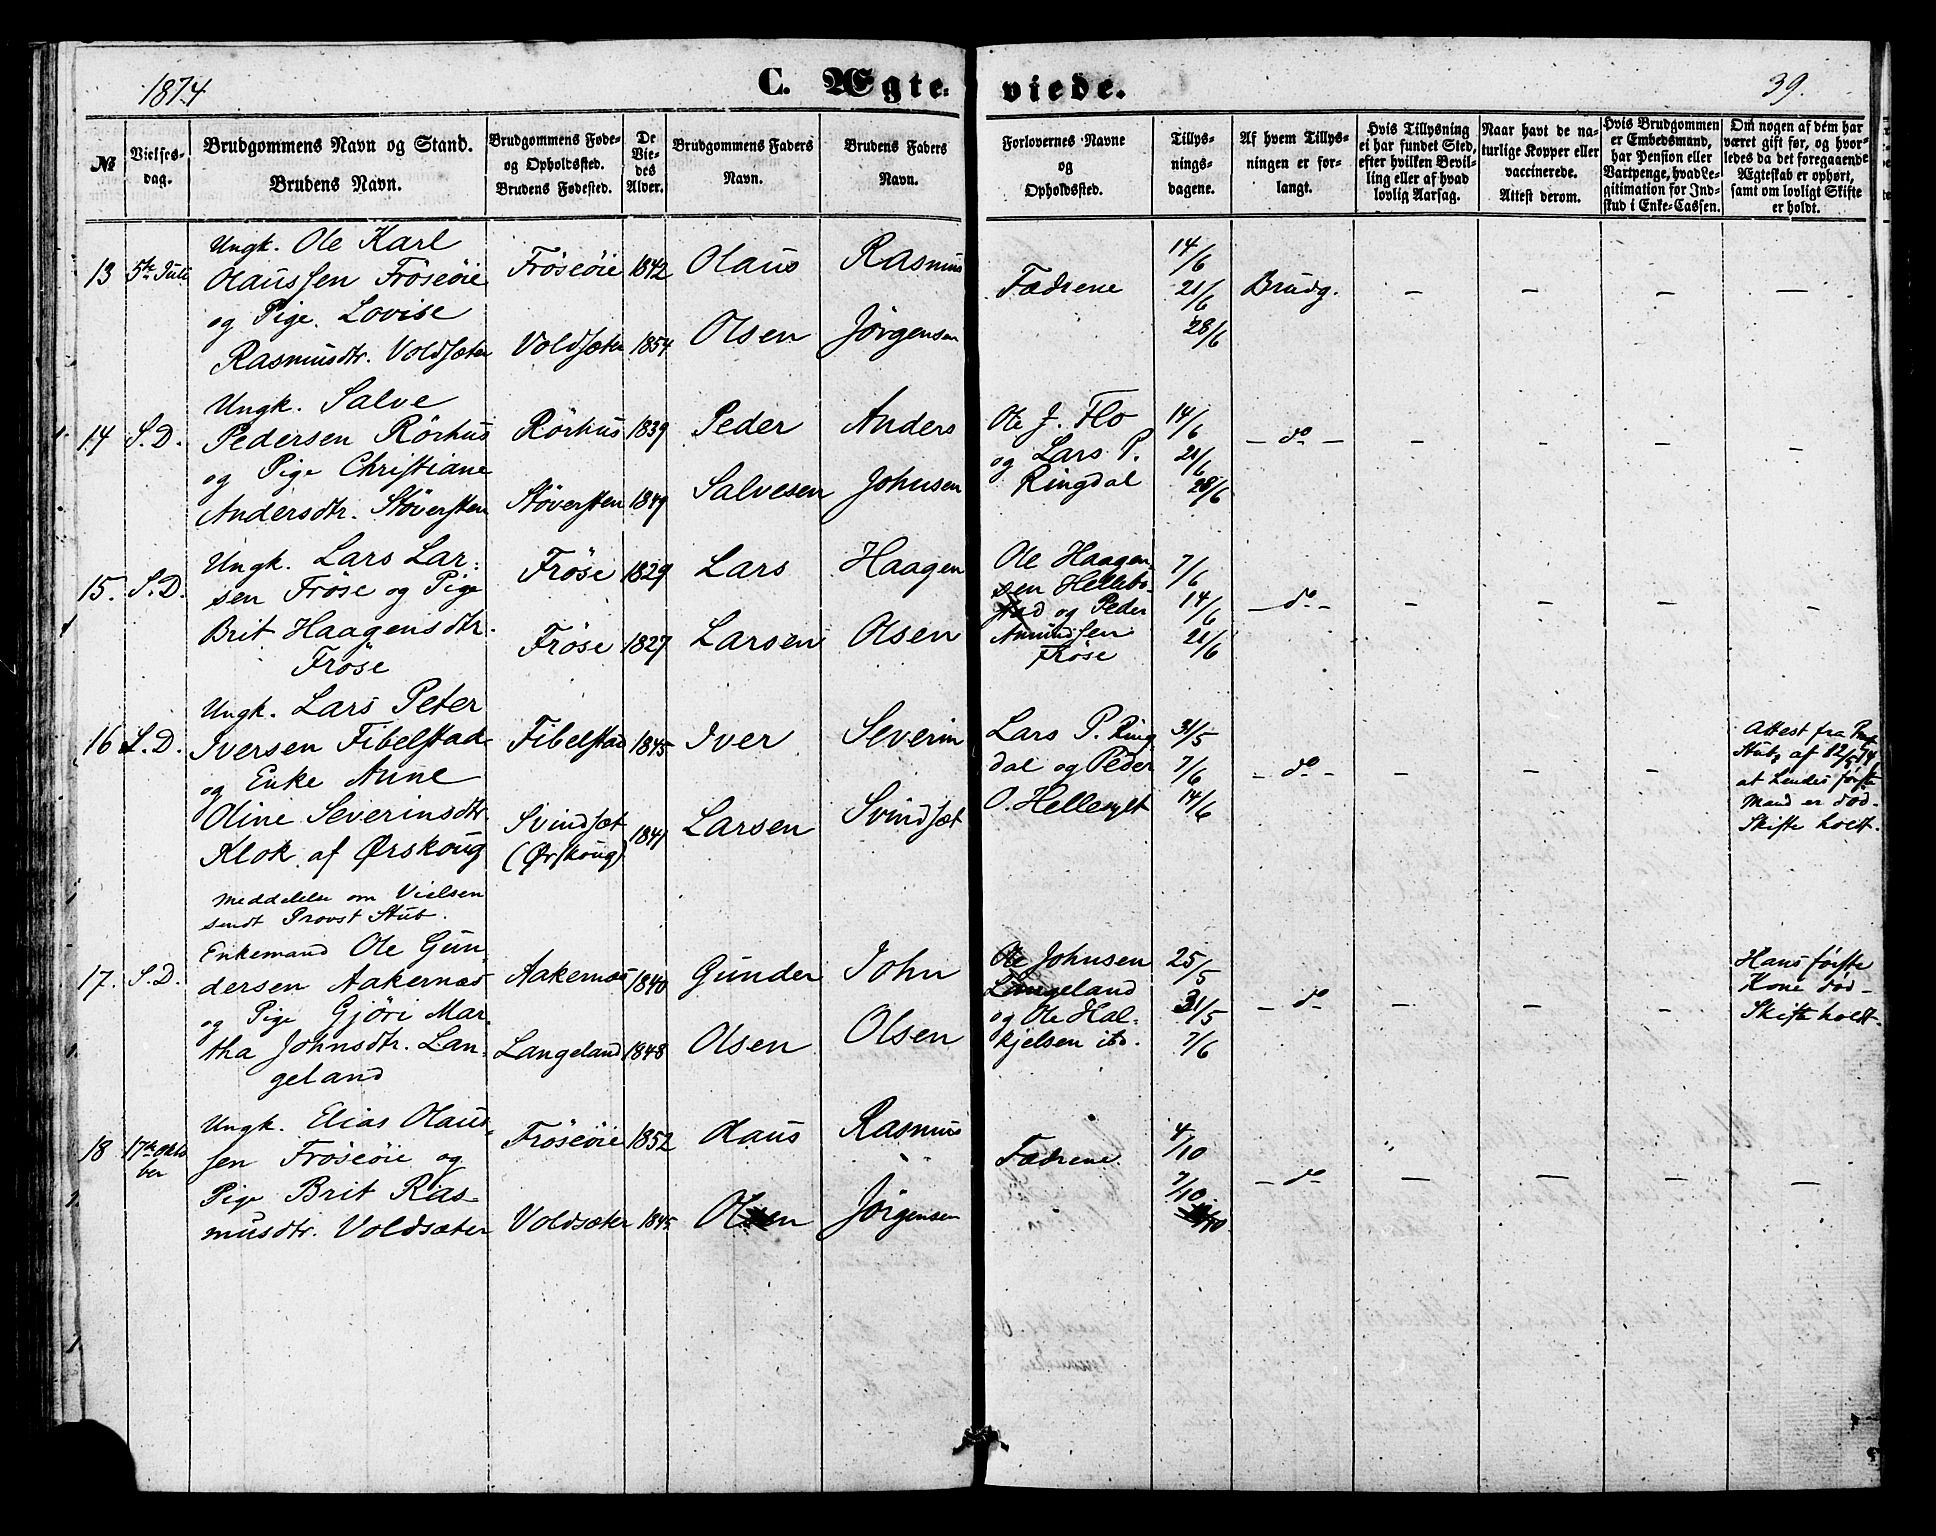 1874
C. Ægteviede.
39.
№
Vielses-
dag.
Brudgommens Navn og Stand.
Brudens Navn.
Brudgommens Føde-
og Opholdssted.
Brudens Fødested.
De
Vie-
des
Alder.
Brudgommens Faders
Navn.
Brudens Faders
Navn.
Forlovernes Navne
og
Opholdssted.
Tillys-
nings-
dagene.
Af hvem Tillys-
ningen er for-
langt.
Hvis Tillysning
ei har fundet Sted,
efter hvilken Bevil-
ling eller af hvad
lovlig Aarsag.
Naar havt de na-
turlige Kopper eller
vaccinerede.
Attest derom.
Hvis Brudgommen
er Embedsmand,
har Pension eller
Vartpenge, hvad Le-
gitimation for Ind-
skud i Enke-Cassen.
Om nogen af dem har
været gift før, og hvor-
ledes da det foregaaende
Ægteskab er ophørt,
samt om lovligt Skifte
er holdt.
13 5te Juli
Ungk. Ole Karl
Olaussen Fröseöie
og Pige Lovise
Rasmusdtr. Voldsæter
Fröseöie 1842
Voldsæter 1854
Olaus
Olsen
Rasmus
Jörgensen
Fædrene
14/6
21/6
28/6
Brudg. – – – –
14 S.D.
Ungk. Salve
Pedersen Rörhus
og Pige Christiane
Andersdtr. Stöversten
Rörhus 1839
Stöversten 1849
Peder
Salvesen
Anders
Johnsen
Ole J. Flo
og Lars P.
Ringdal
14/6
21/6
28/6
– do – – – – –
15. S.D.
Ungk. Lars Lar-
sen Fröse og Pige
Brit Haagensdtr.
Fröse
Fröse 1829
Fröse 1827
Lars
Larsen
Haagen
Olsen
Ole Haagen-
sen Hellebo-
stad og Peder
Amundsen
Fröse
7/6
14/6
21/6
– do – – – – –
16 S.D.
Ungk. Lars Peter
Iversen Fibelstad
og Enke Anne
Oline Severinsdtr.
Klok af Ørskoug
Meddelelse om Vielsen
sendt Provst Stub.
Fibelstad 1845
Svindsæt
(Ørskoug)
Iver
Larsen
Severin
Svindsæt
Lars P. Ring
dal og Peder
O. Hellesylt
31/5
7/6
14/6
– do – – – –
Attest fra
Stub, af 12/5 74
at første
Mand er død-
Skifte holdt.
17. S.D.
Enkemand Ole Gun-
dersen Aakernæs
og Pige Gjöri Mar-
tha Johnsdtr. Lan-
geland
Aakernæs 1840
Langeland 1848
Gunder
Olsen
John
Olsen
Ole Johnsen
Langeland
og Ole Hal-
kjelsen ibd.
25/5
31/5
7/6
– do – – – –
Hans første
Kone død-
Skifte holdt.
18 17de Okto
ber
Ungk. Elias Olaus-
sen Fröseöie og
Pige Brit Ras-
musdtr. Voldsæter
Fröseöie 1852
Voldsæter 1845
Olaus
Olsen
Rasmus
Jörgensen
Fædrene
4/10
7/10
– do – – – – –